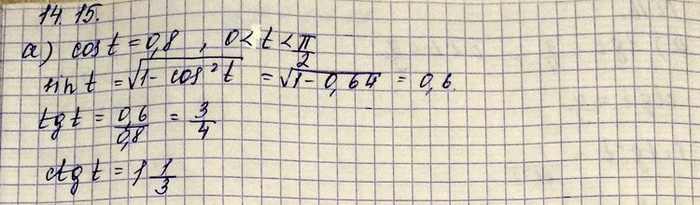 14.15.
а) cos t = 0,8 , 0 < t < π/2
sin t = √(1 - cos² t) = √(1 - 0,64) = 0,6.
tg t = 0,6/0,8 = 3/4
ctg t = 1 1/3